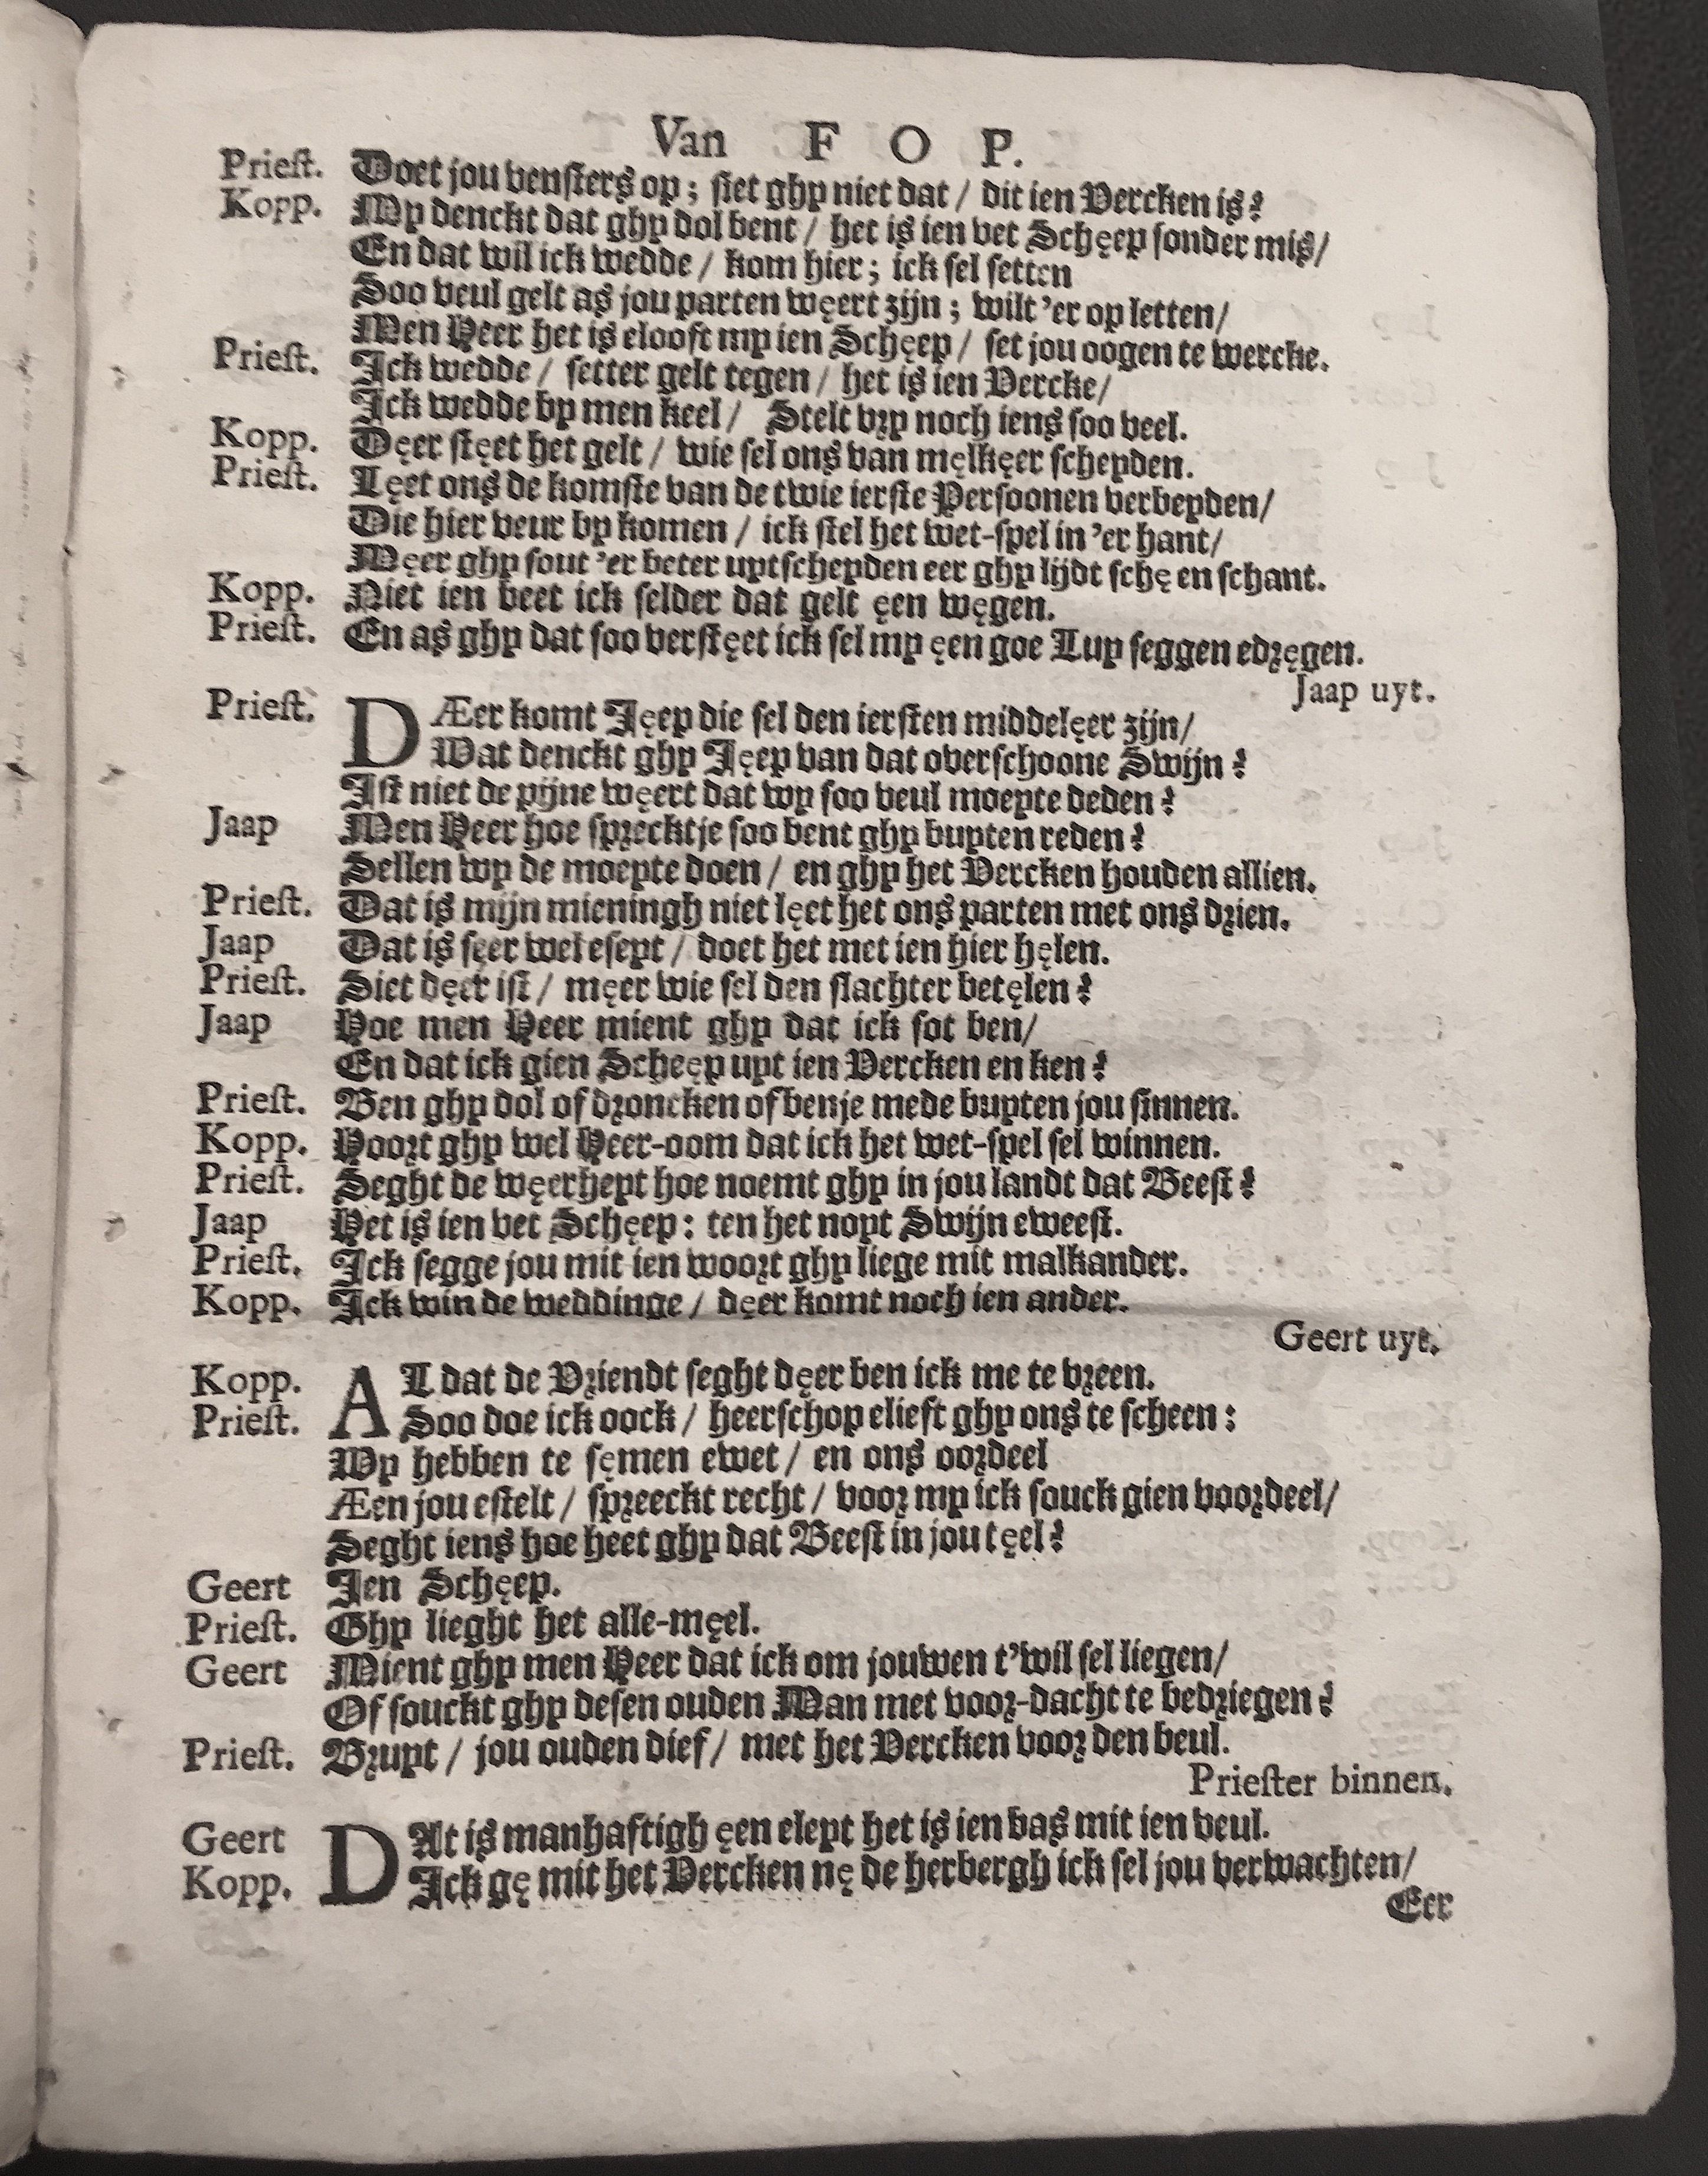 Van F O P.
Prieſt. Doet jou venſters op; ſiet ghy niet dat / dit ien Vercken is?
Kopp. My denckt dat ghy dol bent / het is ien vet Schęep ſonder mis/
En dat wil ick wedde / kom hier; ick ſel ſetten
Soo veul gelt as jou parten węert zijn; wilt 'er op letten/
Men Heer het is elooft my ien Schęep / ſet jou oogen te wercke.
Prieſt. Ick wedde / ſetter gelt tegen / het is ien Vercke/
Ick wedde by men keel / Stelt vry noch iens ſoo veel.
Kopp. Dęer ſtęet het gelt / wie ſel ons van męlkęer ſcheyden.
Prieſt. Lęet ons de komſte van de twie ierſte Perſoonen verbeyden/
Die hier veur by komen / ick ſtel het wet-ſpel in 'er hant/
Męer ghy ſout 'er beter uytſcheyden eer ghy lijdt ſchę en ſchant.
Kopp. Niet ien beet ick ſelder dat gelt ęen węgen.
Prieſt. En as ghy dat ſoo verſtęet ick ſel my ęen goe Luy ſeggen edręgen.
Jaap uyt.
Prieſt. DÆer komt Jęep die ſel den ierſten middelęer zijn/
Wat denckt ghy Jęep van dat overſchoone Swijn?
Iſt niet de pijne węert dat wy ſoo veul moeyte deden?
Jaap Men Heer hoe ſprecktje ſoo bent ghy buyten reden?
Sellen wy de moeyte doen / en ghy het Vercken houden allien.
Prieſt. Dat is mijn mieningh niet lęet het ons parten met ons drien.
Jaap Dat is ſęer wel eſeyt / doet het met ien hier hęlen.
Prieſt. Siet dęer iſt / męer wie ſel den ſlachter betęlen?
Jaap Hoe men Heer mient ghy dat ick ſot ben/
En dat ick gien Schęep uyt ien Vercken en ken?
Prieſt. Ben ghy dol of droncken of benje mede buyten jou ſinnen.
Kopp. Hoort ghy wel Heer-oom dat ick het wet-ſpel ſel winnen.
Prieſt. Seght de węerheyt hoe noemt ghy in jou landt dat Beeſt?
Jaap Het is ien vet Schęep: ten het noyt Swijn eweeſt.
Prieſt. Ick ſegge jou mit ien woort ghy liege mit malkander.
Kopp. Ick win de weddinge / dęer komt noch ien ander.
Geert uyt.
Kopp. AL dat de Vriendt ſeght dęer ben ick me te vreen.
Prieſt. Soo doe ick oock / heerſchop elieft ghy ons te ſcheen:
Wy hebben te ſęmen ewet / en ons oordeel
Æen jou eſtelt / ſpreeckt recht / voor my ick ſouck gien voordeel/
Seght iens hoe heet ghy dat Beeſt in jou tęel?
Geert Ien Schęep.
Prieſt. Ghy lieght het alle-męel.
Geert Mient ghy men Heer dat ick om jouwen t'wil ſel liegen/
Of ſouckt ghy deſen ouden Man met voor-dacht te bedriegen?
Prieſt. Bruyt / jou ouden dief / met het Vercken voor den beul.
Prieſter binnen.
Geert DAt is manhaftigh ęen eleyt het is ien bas mit ien veul.
Kopp. Ick gę mit het Vercken nę de herbergh ick ſel jou verwachten/
Eer